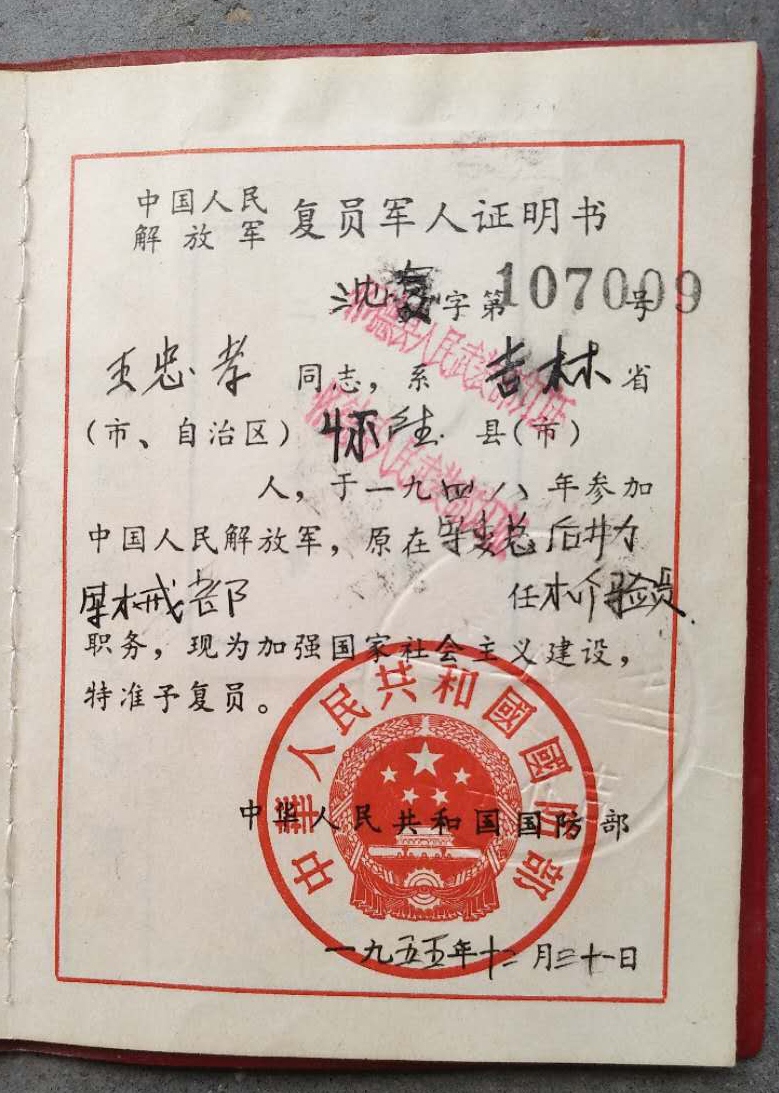 中国人民
解放军 复员军人证明书
沈复字第107009号
王忠孝 同志，系 吉林 省
（市、自治区） 怀德 县（市）
人，于一九四八年参加
中国人民解放军，原在军委总后勤
军械部 任检验员
职务，现为加强国家社会主义建设，
特准予复员。
中华人民共和國國防部
中华人民共和国国防部
一九五五年十二月三十一日